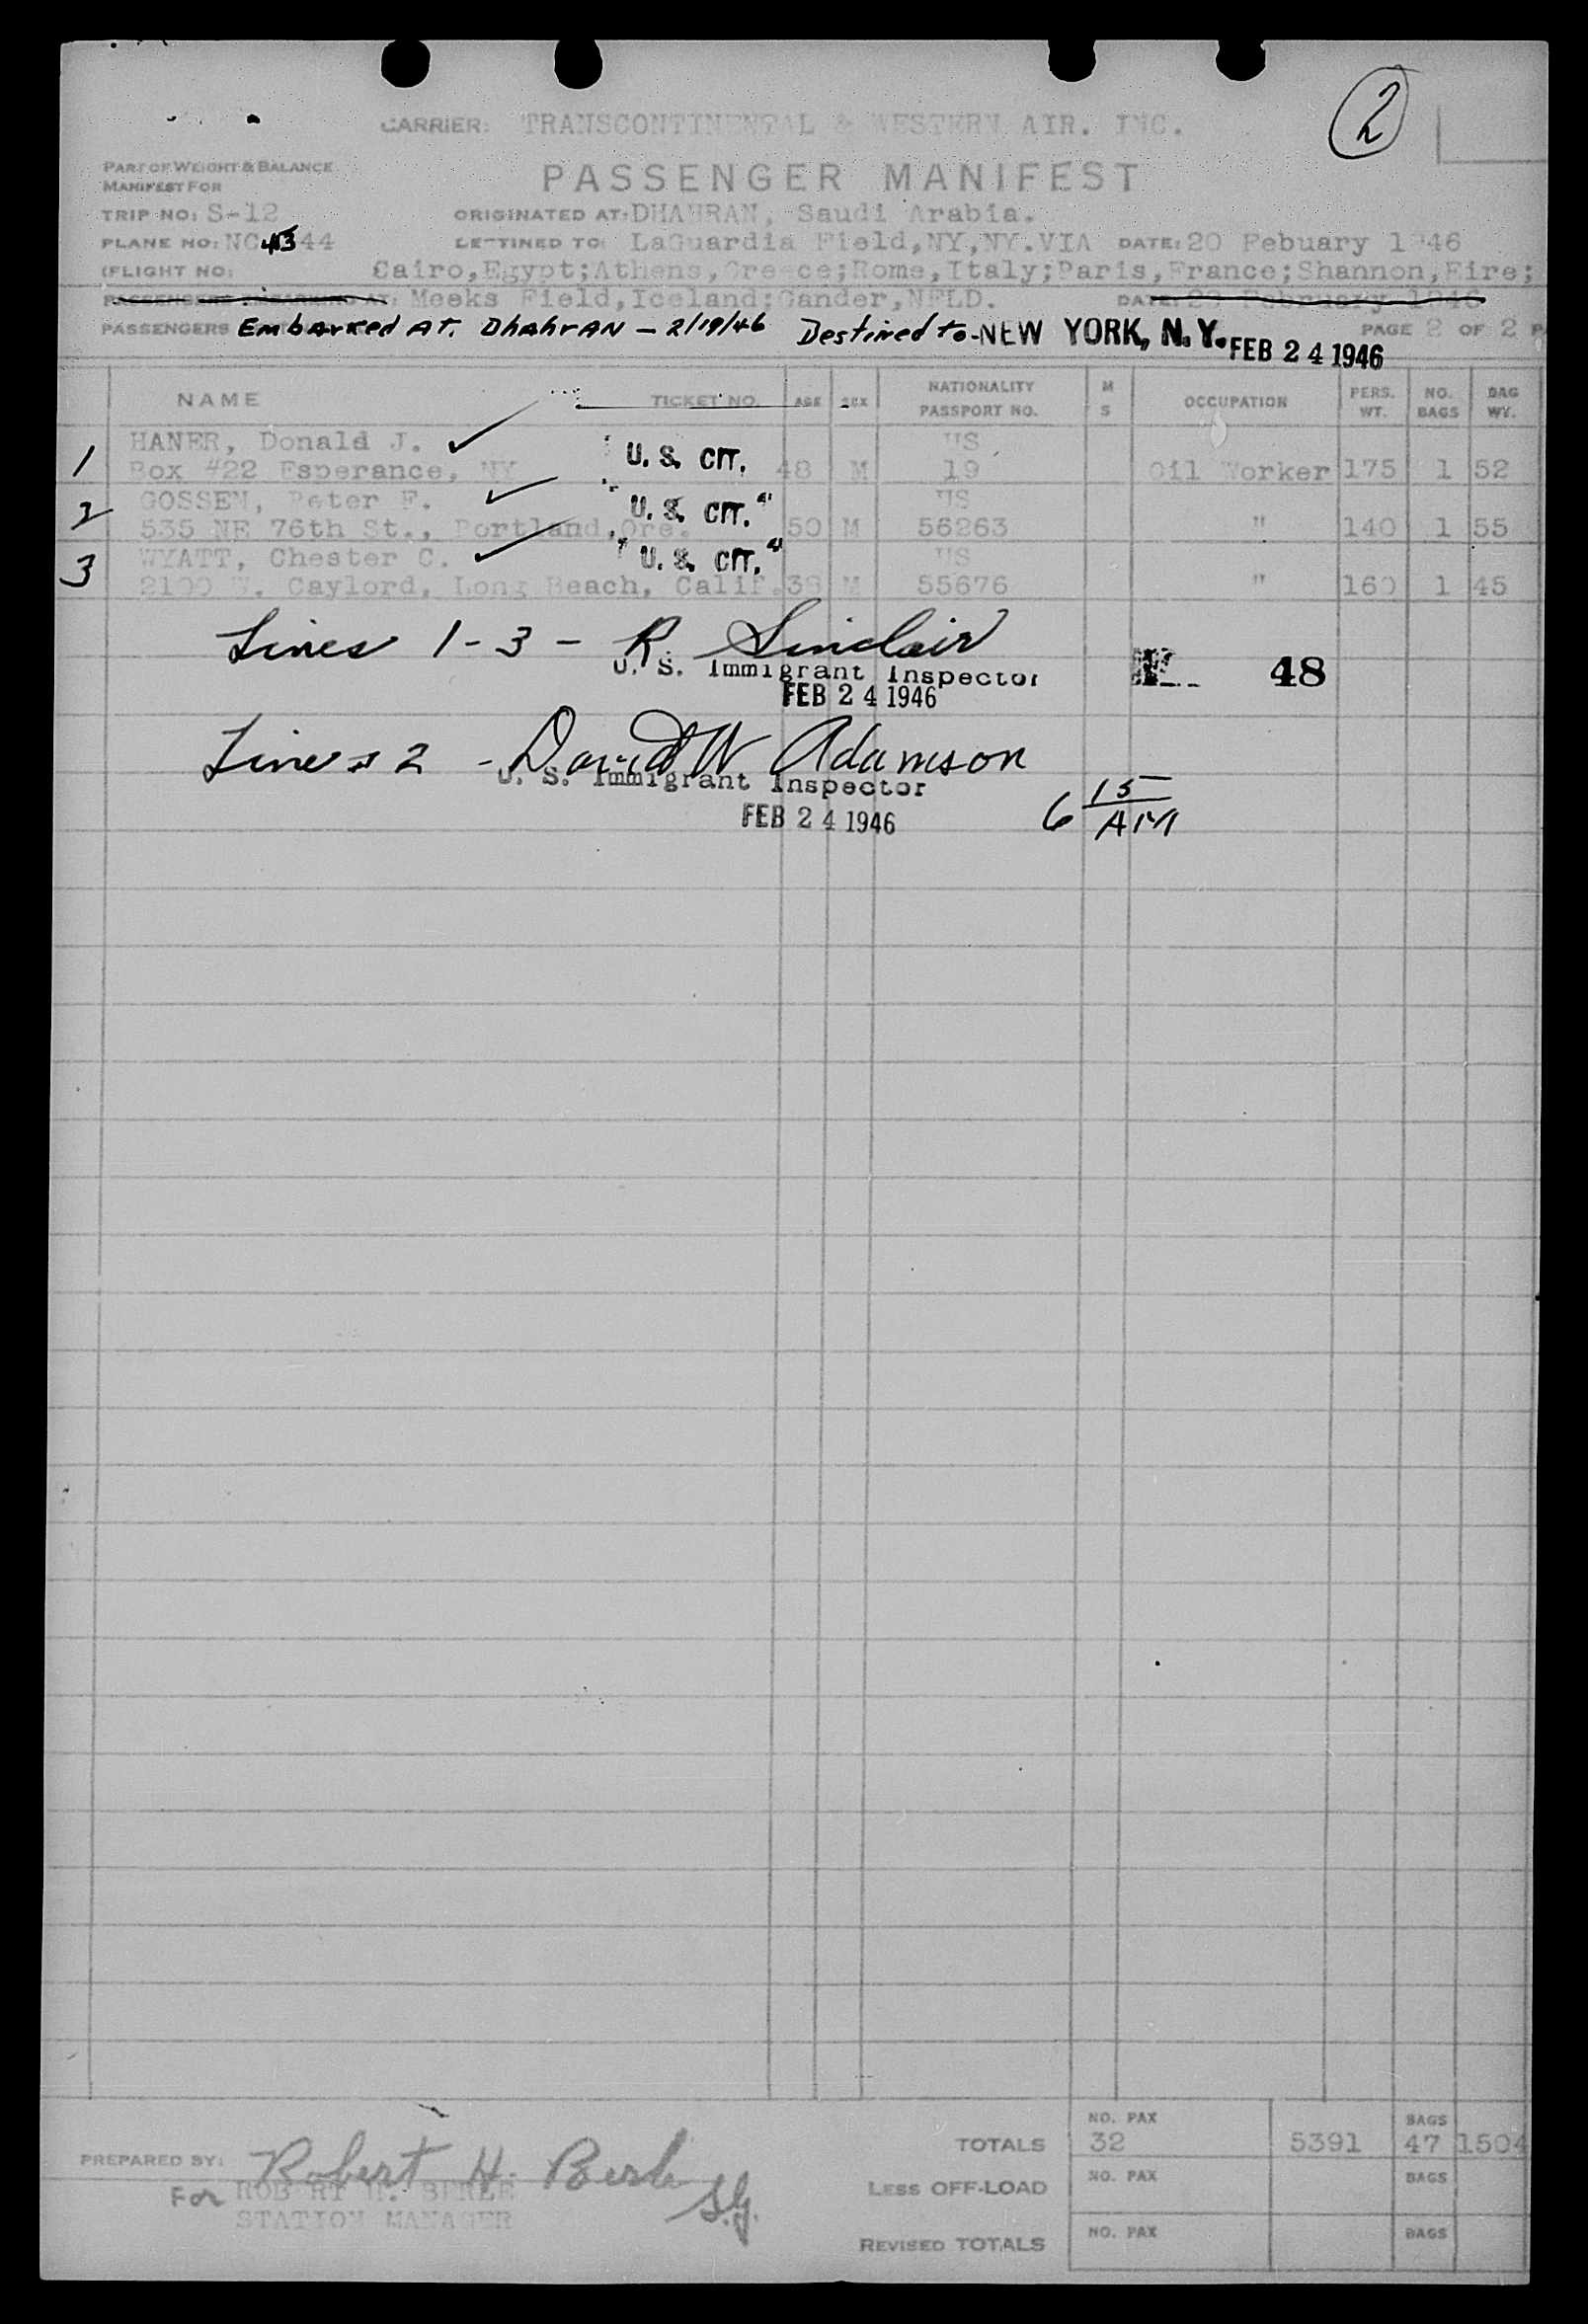 2
CARRIER: TRANSCONTINENTAL & WESTERN AIR. INC.
PART OF WEIGHT & BALANCE
MANIFEST FOR
PASSENGER MANIFEST
TRIP NO: S-12 ORIGINATED AT: DHAHRAN, Saudi Arabia.
PLANE NO: NC 44 DESTINED TO: LaGuardia Field,NY,NY.VIA DATE: 20 Febuary 1946
(FLIGHT NO: Cairo,Egypt;Athens,Greece;Rome,Italy;Paris,France;Shannon,Eire;
PASSENGERS EMBARKING AT: Meeks Field,Iceland;Gander,NFLD. DATE: February 1946
PASSENGERS Embarked At. Dhahran - 2/19/46 Destined to - NEW YORK, N.Y. FEB 24 1946 PAGE 2 OF 2
NAME TICKET NO. AGE SEX NATIONALITY PASSPORT NO. M S OCCUPATION PERS. WT. NO. BAGS BAG WY.
1 HANER, Donald J. U.S. CIT. US
Box #22 Esperance, NY 48 M 19 Oil Worker 175 1 52
2 GOSSEN, Peter F. "U.S. CIT." US
535 NE 76th St., Portland,Ore. 50 M 56263 " 140 1 55
3 WYATT, Chester C. "U.S. CIT." US
Caylord, Long Beach, Calif. M 55676 " 160 1 45
Lines 1-3 - R. Sinclair
U. S. Immigrant Inspector
FEB 24 1946
48
Lines 2 - David W Adamson
U. S. Immigrant Inspector
FEB 24 1946
6 15 AM
TOTALS NO. PAX 32 5391 BAGS 47 1504
PREPARED BY: Robert H. Berle
For ROBERT H. BERLE S.G.
STATION MANAGER
LESS OFF-LOAD NO. PAX BAGS
REVISED TOTALS NO. PAX BAGS